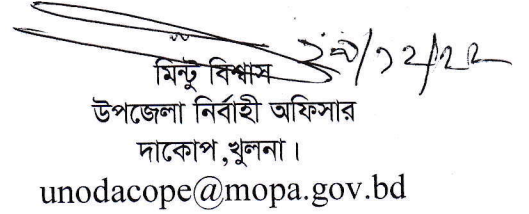 মিন্টু বিশ্বাস
উপজেলা নির্বাহী অফিসার
দাকোপ,খুলনা।
unodacope@mopa.gov.bd